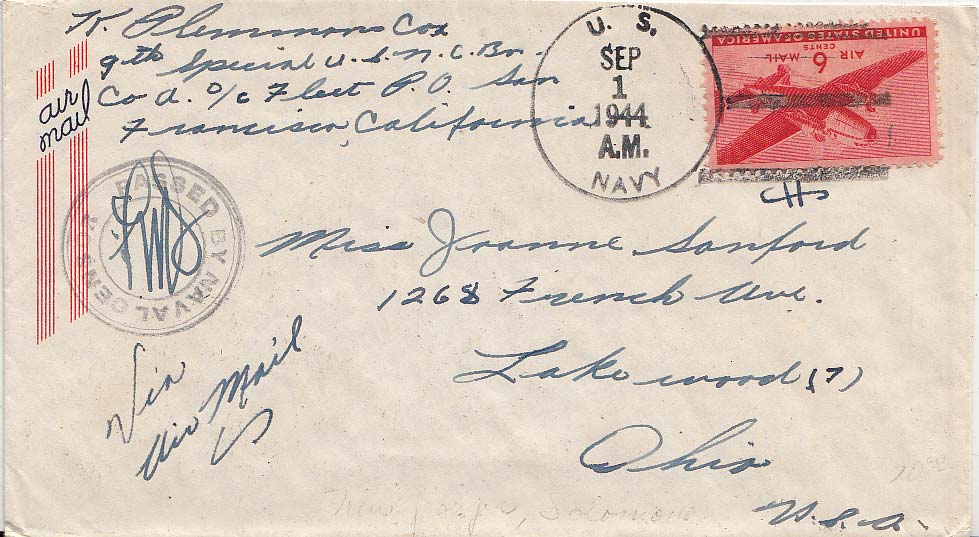 K. Clemmons Cox
9th Special U.S.N.C.Bn.
Co A. c/o Fleet P.O. San
Francisco, California
air
mail
U. S.
SEP
1
1944
A.M.
NAVY
UNITED STATES OF AMERICA
6 CENTS AIR MAIL
PASSED BY NAVAL CENSOR
Miss Joanne Sanford
1268 French Ave.
Lakewood (7)
Ohio
U.S.A.
Via
Air Mail
New Solomons